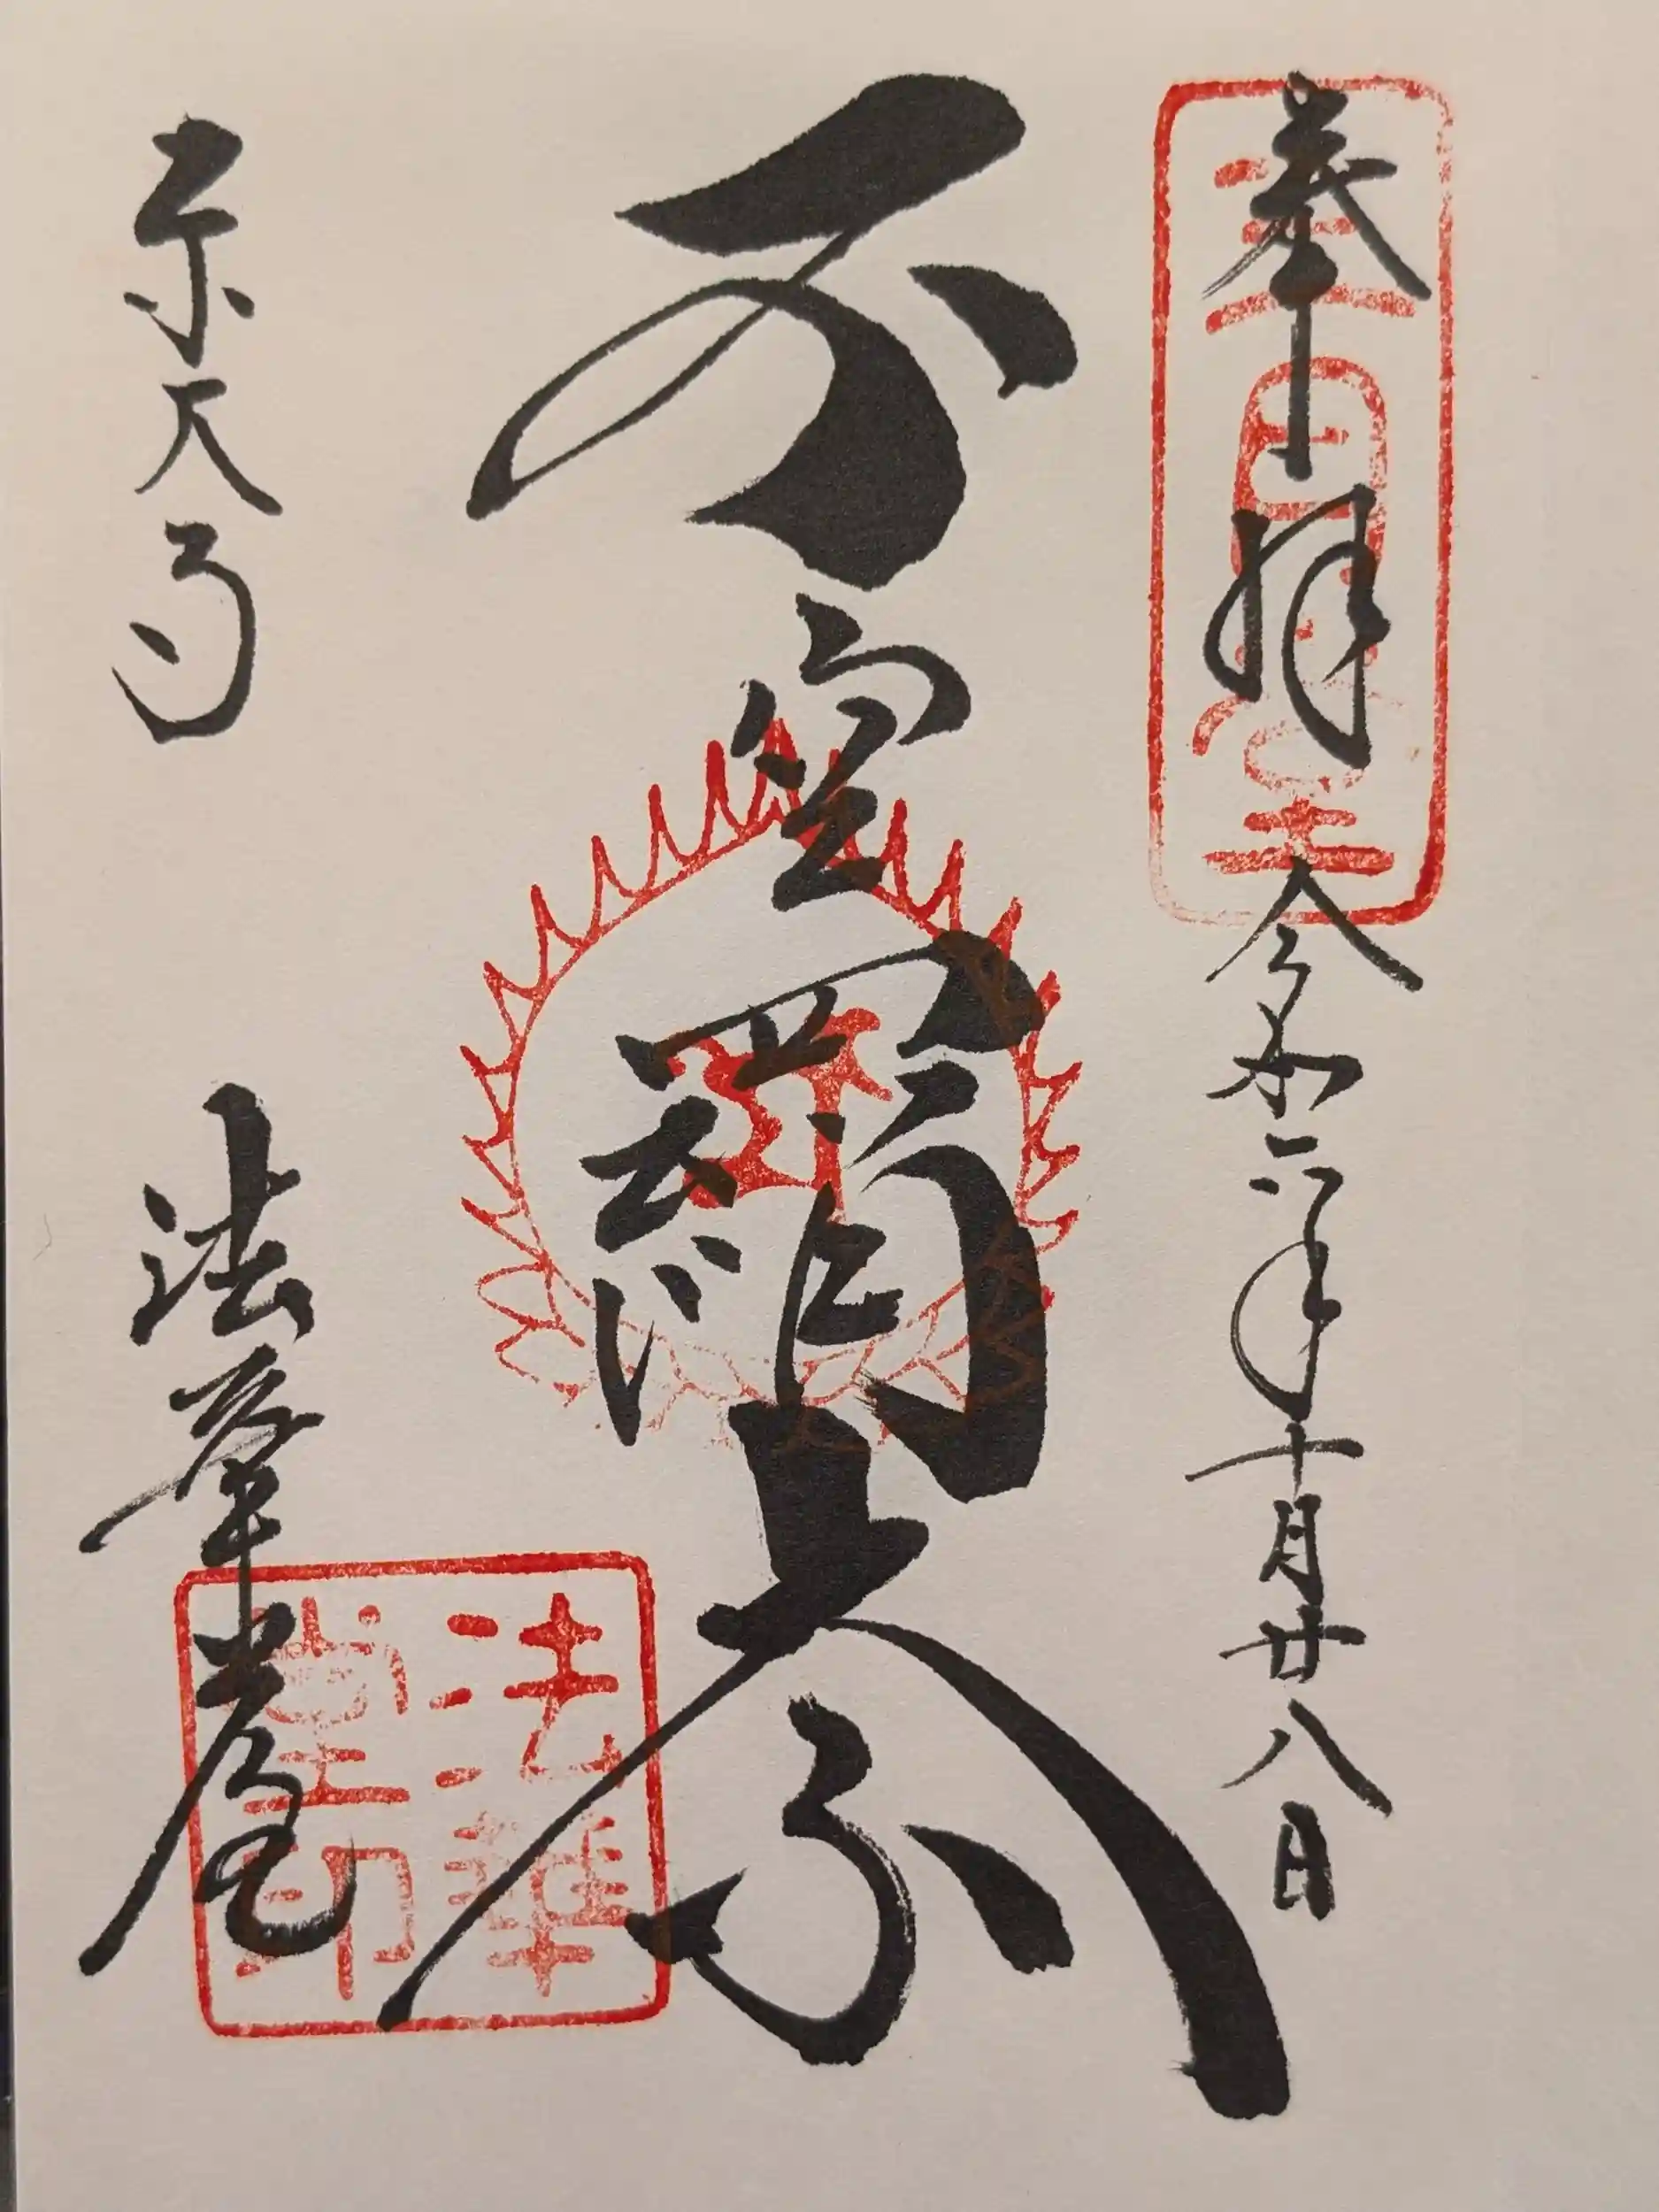 奉拝 令和六年十月廿八日
三月堂
不空羂索
東大寺 法華堂
法華
堂印